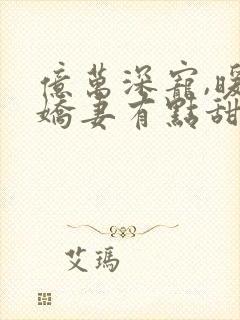 億萬深寵,暖
嬌妻有點甜
艾瑪